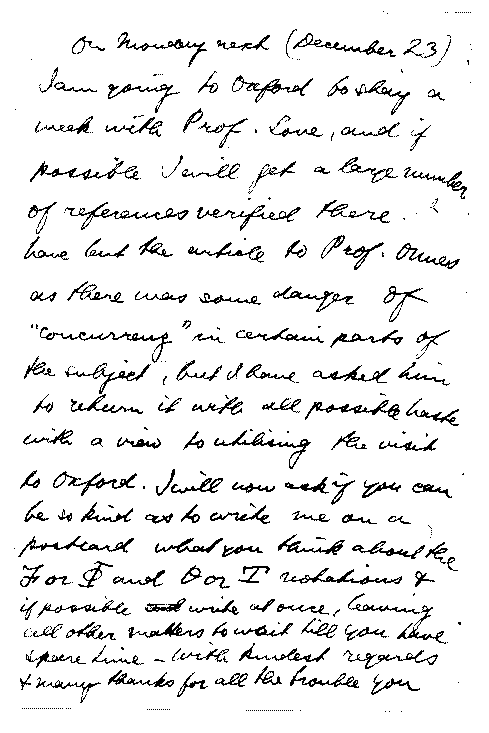 On Monday next (December 23)
I am going to Oxford to stay a
week with Prof. Love, and if
possible I will get a large number
of references verified there. I
have lent the article to Prof. Onnes
as there was some danger of
"concurrenz" in certain parts of
the subject, but I have asked him
to return it with all possible haste
with a view to utilising the visit
to Oxford. I will now ask if you can
be so kind as to write me on a
postcard what you think about the
F or Φ and θ or T notations &
if possible write at once, leaving
all other matters to wait till you have
spare time – with kindest regards
& many thanks for all the trouble you